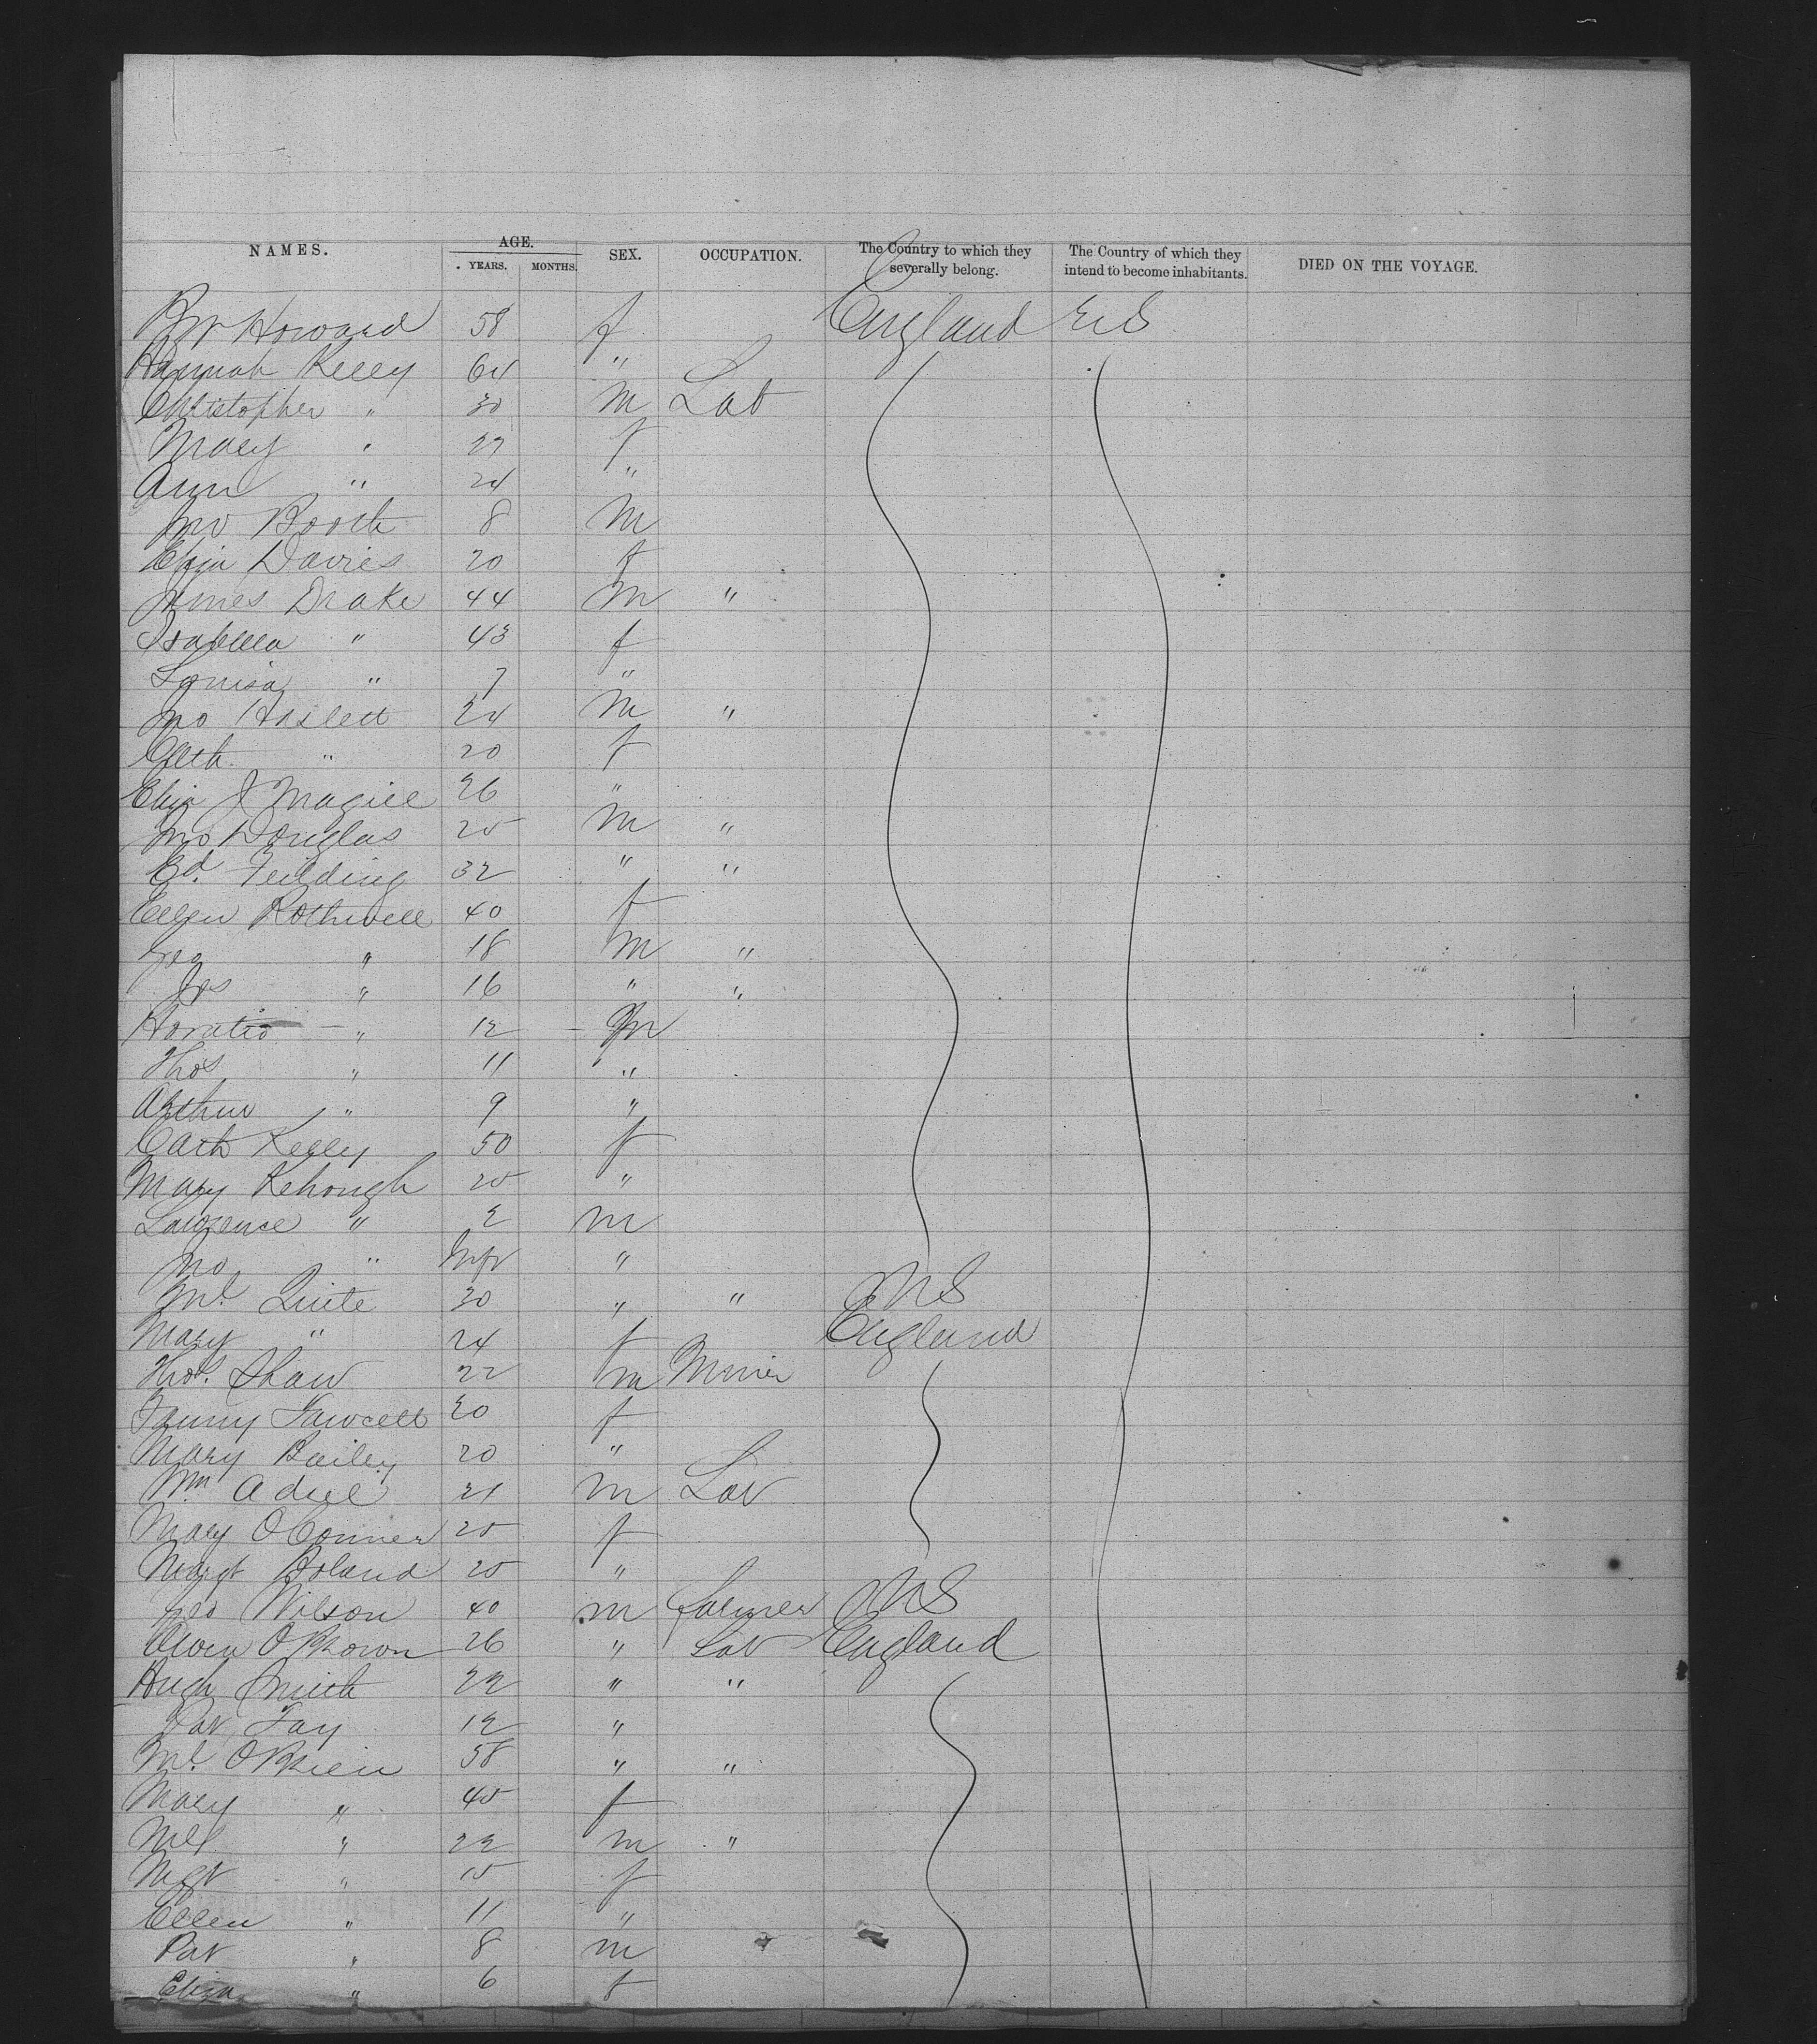 NAMES. AGE. SEX. OCCUPATION. The Country to which they severally belong. The Country of which they intend to become inhabitants. DIED ON THE VOYAGE.
YEARS. MONTHS.
Howard 58 f England US
Hannah Kelly 64 "
Christopher " 30 M Lab
Mary " 22 f
Ann " 24 "
Jno Booth 8 M
Eliza Davies 20 f
James Drake 44 M "
Isabella " 43 f
Louisa " 7 "
Jno Haslett 24 M "
Cath " 20 f
Eliza J Magill 26 "
Jno Douglas 25 M "
Ed. Feilding 32 " "
Ellen Rothwell 40 f
Geo " 18 M "
Jos " 16 " "
Horatio " 12 M
Thos " 11 "
Arthur " 9 "
Cath Kelly 50 f
Mary Kehough 25 "
Lawrence " 2 M
Jno " Inft "
Ml. 30 " " US
Mary " 24 f England
Thos. Shaw 22 M Miner
Fanny Fawcett 20 f
Mary Bailey 20 "
Wm 21 M Lab
Mary OConner 25 f
Margt Boland 25 "
Geo Wilson 40 M farmer US
Owen OBrown 26 " Lab England
Hugh Smith 22 " "
Pat Fay 12 "
Ml. OBrien 58 " "
Mary " 45 f
Ml " 22 M "
Mgt " 15 f
Ellen " 11 "
Pat " 8 M
Eliza " 6 f